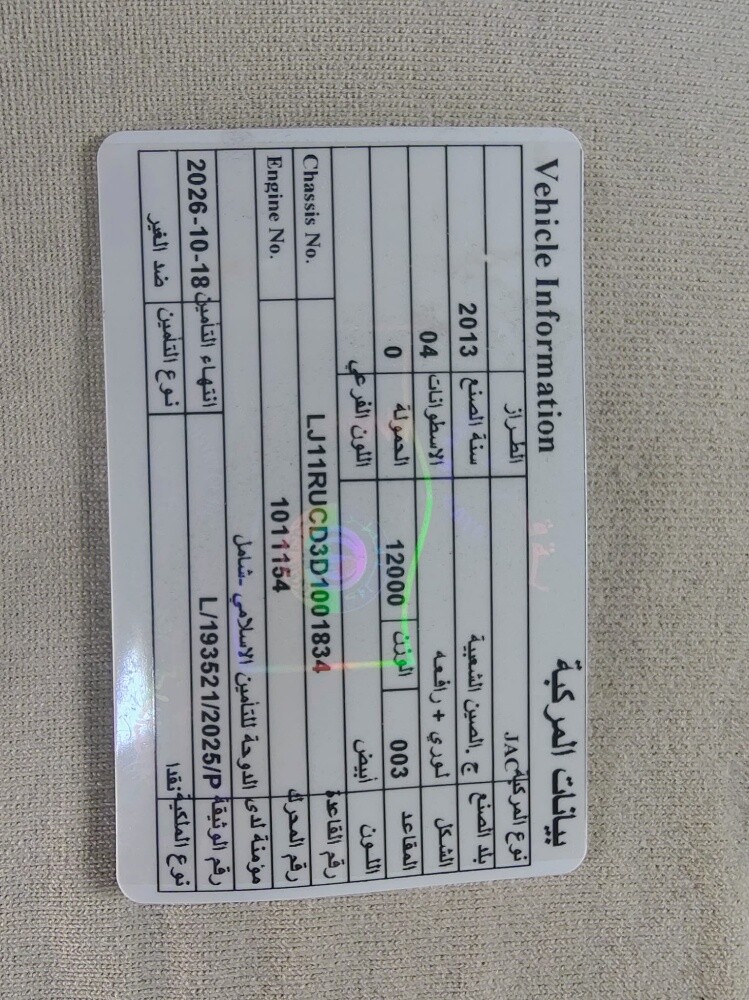 Vehicle Information بيانات المركبة
نوع المركبة JAC الطراز
بلد الصنع ج .الصين الشعبية سنة الصنع 2013
الشكل لوري + رافعه الاسطوانات 04
المقاعد 003 الوزن 12000 الحمولة 0
اللون أبيض اللون الفرعي
رقم القاعدة LJ11RUCD3D1001834 Chassis No.
رقم المحرك 1011154 Engine No.
مؤمنة لدى الدوحة للتأمين الاسلامي -شامل
رقم الوثيقة L/193521/2025/P انتهاء التأمين 2026-10-18
نوع الملكية نقدا نوع التأمين ضد الغير